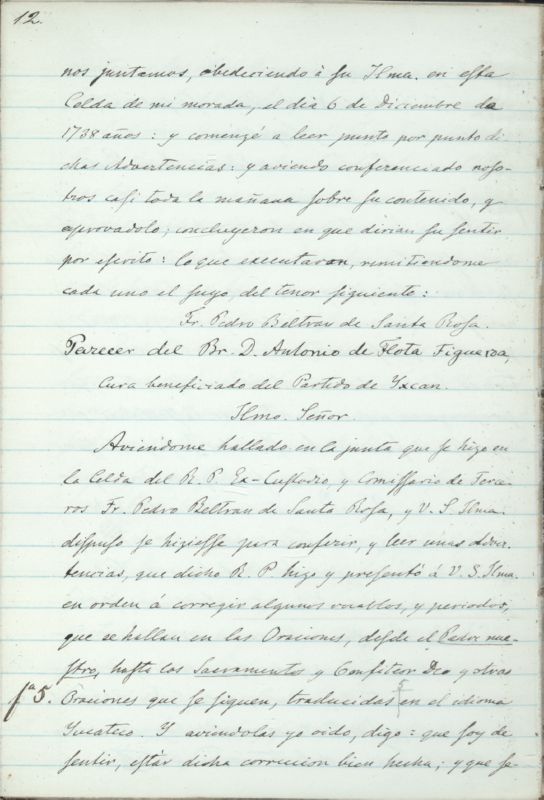 12.
nos juntamos, obedeciendo à su Ilma. en esta
Celda de mi morada, el dia 6 de Diciembre de
1738 años: y comenzé a leer punto por punto di-
chas Advertencias: y aviendo conferenciado noso-
tros casi toda la mañana sobre su contenido, y
aprovadolo; concluyeron en que dirian su sentir
por escrito: lo que executaron, remitiendome
cada uno el suyo, del tenor siguiente:
Fr. Pedro Beltran de Santa Rosa.
Parecer del Br. D. Antonio de Flota Figueroa,
Cura beneficiado del Partido de Yxcan.
Ilmo. Señor.
Aviendome hallado en la junta que se hizo en
la Celda del R. P. Ex-Custodio, y Comissario de Terce-
ros Fr. Pedro Beltran de Santa Rosa, y V. S. Ilma.
dispuso se hiziesse para conferir, y leer unas adver-
tencias, que dicho R. P. hizo y presentó á V. S. Ilma.
en orden á corregir algunos vocablos, y periodos,
que se hallan en las Oraciones, desde el Padre nue-
stro, hasta los Sacramentos y Confiteor Deo y otras
fa 5. Oraciones que se siguen, traducidas 5 en el idioma
Yucateco. Y aviendolas yo oido, digo: que soy de
sentir, estàr dicha correccion bien hecha; y que se